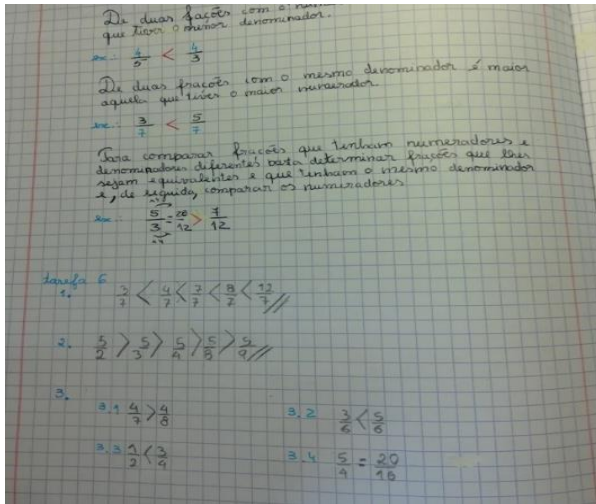 De duas frações com o
que tiver o menor denominador.
ex.: 4/5 < 4/3
De duas frações com o mesmo denominador é maior
aquela que tiver o maior numerador.
ex.: 3/7 < 5/7
Para comparar frações que tenham numeradores e
denominadores diferentes basta determinar frações que lhes
sejam equivalentes e que tenham o mesmo denominador
e, de seguida, comparar os numeradores
ex.: 5/3 = 20/12 > 7/12
tarefa 6
1. 3/7 < 4/7 < 7/7 < 8/7 < 12/7
2. 5/2 > 5/3 > 5/4 > 5/8 > 5/9
3.
3.1 4/7 > 4/8 3.2 3/6 < 5/6
3.3 1/2 < 3/4 3.4 5/4 = 20/16